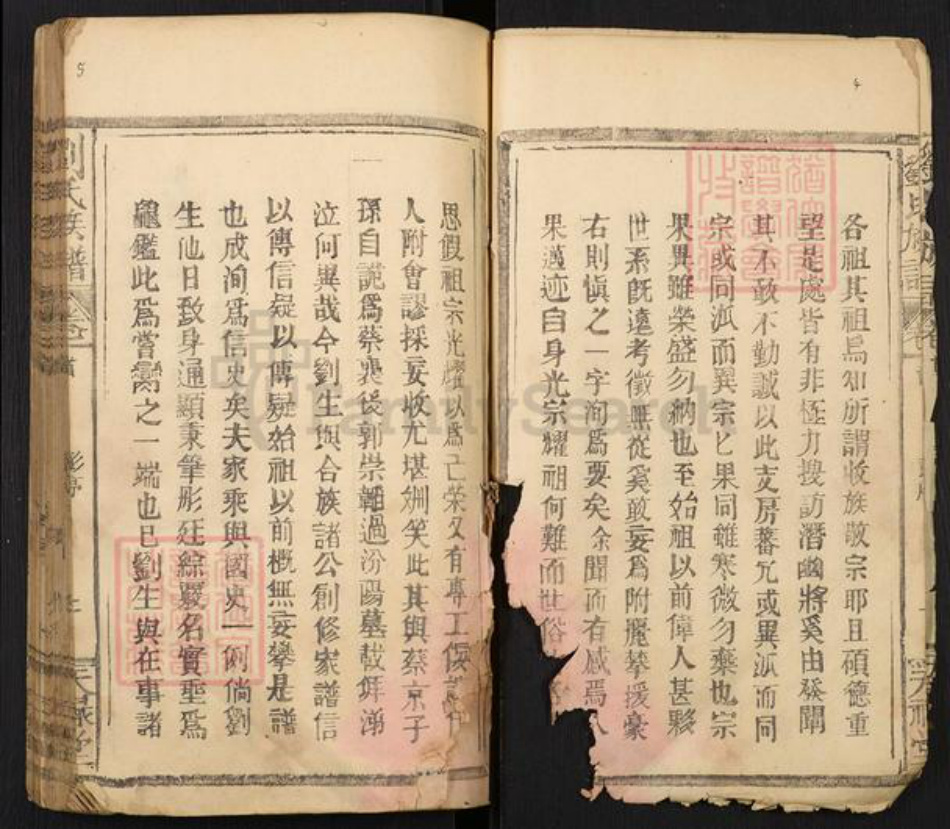 各祖其祖烏知所謂收族敬宗耶且碩德重
望是處皆有非極力搜訪潛幽將奚由發闡
其不敢不勤誠以此支房蕃冗或異派而同
宗或同派而異宗匕果同雖寒微勿棄也宗
果異雖榮盛勿納也至始祖以前偉人甚夥
世系既遠考徵無從奚敢妄為附麗攀援豪
右則慎之一字洵為要矣余聞而有感焉人
果邁迹自身光宗耀祖何難而世俗
思假祖宗光耀以為己榮又有專工
人附會謬採妄收尤堪姍笑此其與蔡京子
孫自詭為蔡襄後郭崇韜過汾陽墓載拜湧
泣何異哉今劉生與合族諸公創修家譜信
以傳信疑以傳疑始祖以前概無妄攀是譜
也成洵為信史矣夫家乘與國史一例倘劉
生他日致身通顯秉筆彤廷綜覈名實垂為
龜鑑此為嘗臠之一端也已劉生與在事諸
劉氏族譜
FamilySearch
5
4